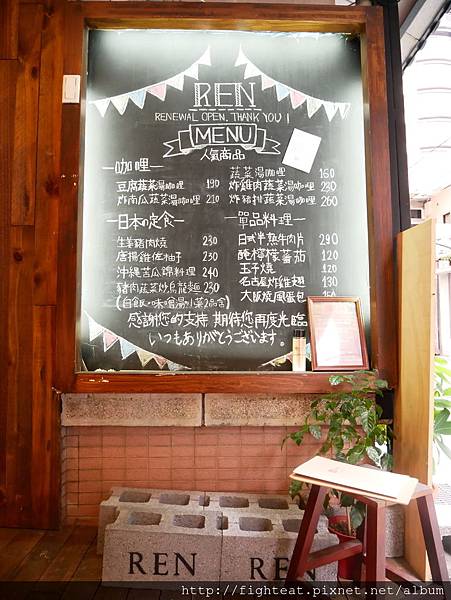 REN
RENEWAL OPEN. THANK YOU!
MENU
人気商品
咖哩
豆腐蔬菜湯咖哩 190
炸南瓜蔬菜湯咖哩 210
蔬菜湯咖哩 160
炸雞肉蔬菜湯咖哩 230
炸豬排蔬菜湯咖哩 260
日本の定食
生姜豬肉燒 230
唐揚雞佐柚子 230
沖縄苦瓜錦料理 240
豬肉蔬菜炒烏龍麵 230
(白飯・味噌湯・小菜2品含)
單品料理
日式半熟牛肉片 290
醃檸檬蕃茄 120
玉子燒 120
名古屋炸雞翅 130
大阪燒風蛋包 150
感謝您的支持 期待您再度光臨
いつもありがとうございます。
REN
REN
http://fighteat.pixnet.net/album